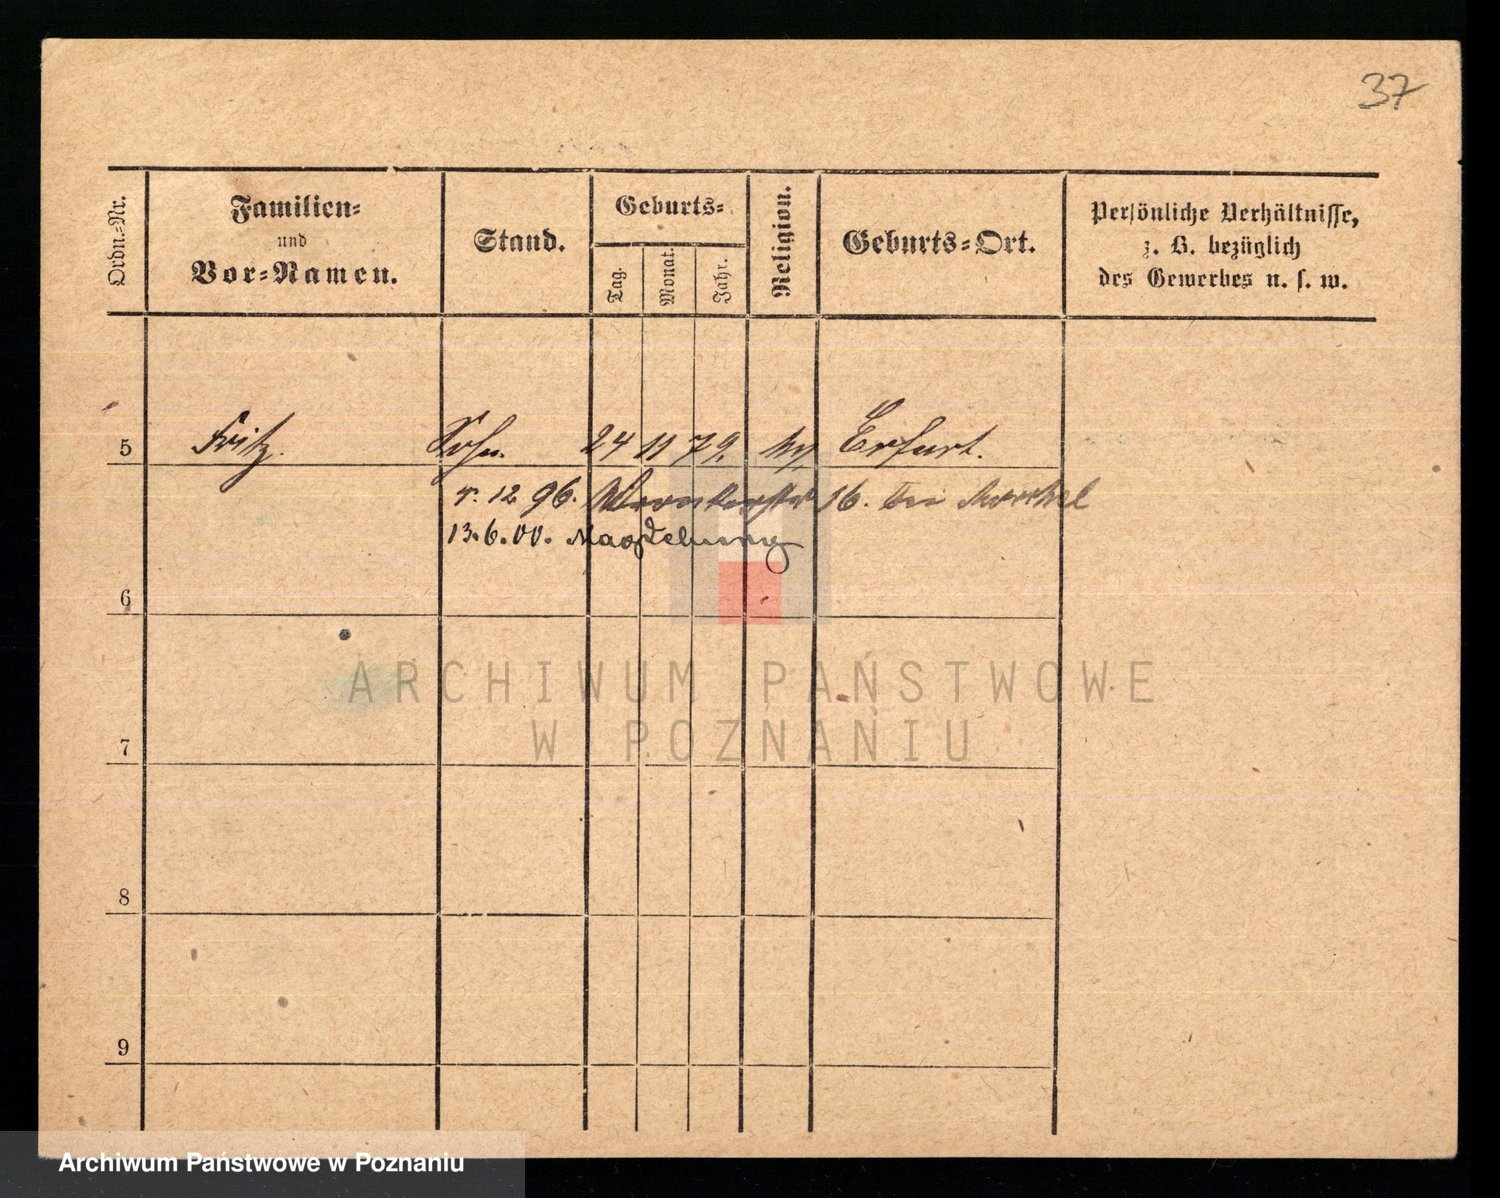 37
Ordn.-Nr.
Familien-
und
Vor-Namen.
Stand.
Geburts-
Tag.
Monat.
Jahr.
Religion.
Geburts-Ort.
Persönliche Verhältnisse,
z. B. bezüglich
des Gewerbes u. s. w.
5 Fritz. Sohn. 24 11 79. Erfurt.
12 96. 16. bei
13.6.00. Magdeburg
6
7
8
9
ARCHIWUM PAŃSTWOWE
W POZNANIU
Archiwum Państwowe w Poznaniu